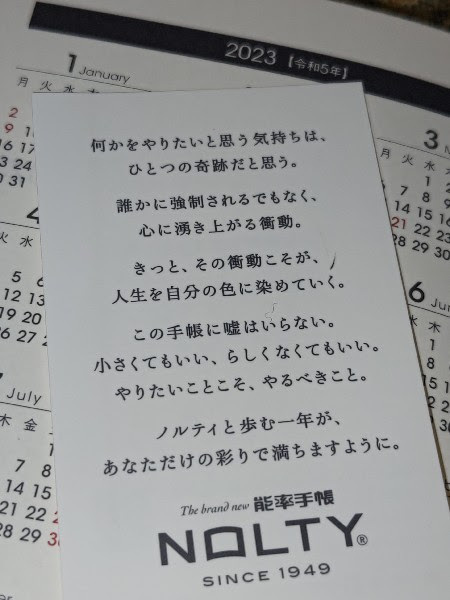 2023【令和5年】
1 January
月 火 水 木
2
9
16 17
30 31
3
月 火 水 木
1 2
7 8 9
14 15 16
21 22 23
28 29 30
4
火 水
5 6
12 13
19 20
26 27
6
水 木
July
木 金
1
7 8
14 15
21 22
28 29
何かをやりたいと思う気持ちは、
ひとつの奇跡だと思う。
誰かに強制されるでもなく、
心に湧き上がる衝動。
きっと、その衝動こそが、
人生を自分の色に染めていく。
この手帳に嘘はいらない。
小さくてもいい、らしくなくてもいい。
やりたいことこそ、やるべきこと。
ノルティと歩む一年が、
あなただけの彩りで満ちますように。
The brand new 能率手帳
NOLTY®
SINCE 1949